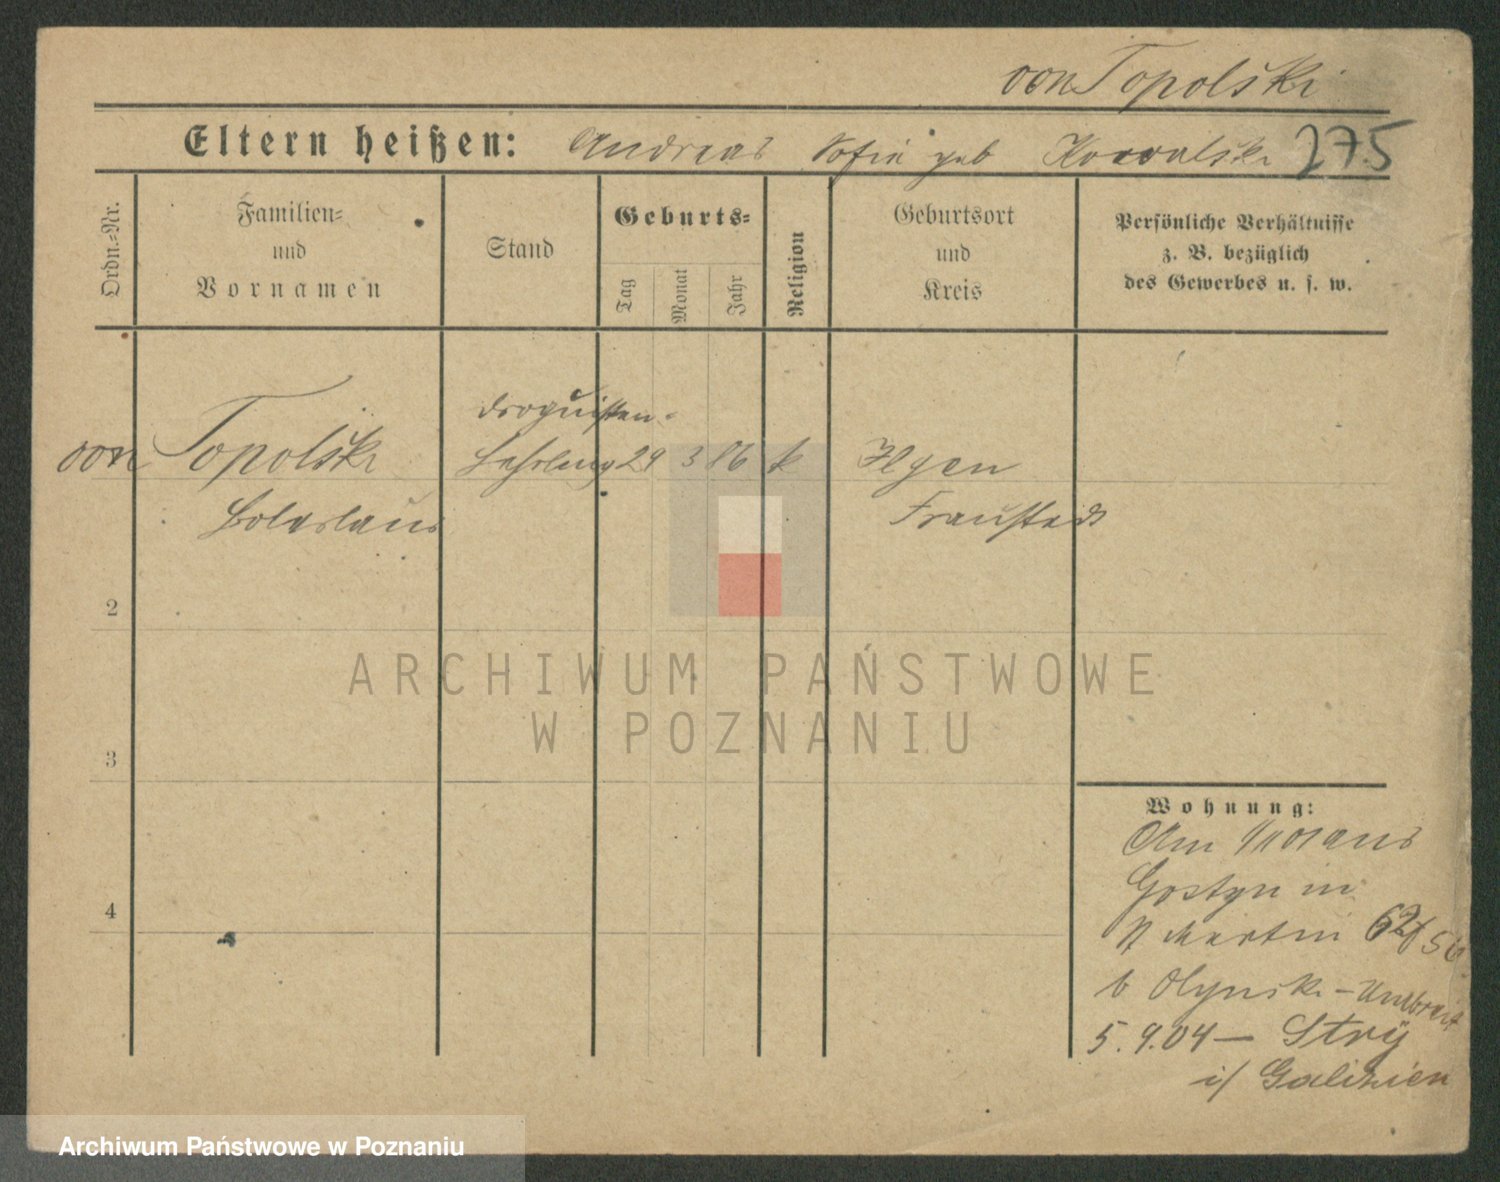 von Topolski
Eltern heißen: Andreas Sofia geb Kowalski 275
Ordn.-Nr.
Familien-
und
Vornamen
Stand
Geburts-
Tag
Monat
Jahr
Religion
Geburtsort
und
Kreis
Persönliche Verhältnisse
z. B. bezüglich
des Gewerbes u. s. w.
Droguisten-
von Topolski Lehrling 29 3 86 k Ilgen
Boleslaus Fraustadt
2
3
4
ARCHIWUM PAŃSTWOWE
W POZNANIU
Wohnung:
Gostyn in
St Martin 62
b Olynski
5.9.04 – Stry
i/ Galizien
Archiwum Państwowe w Poznaniu